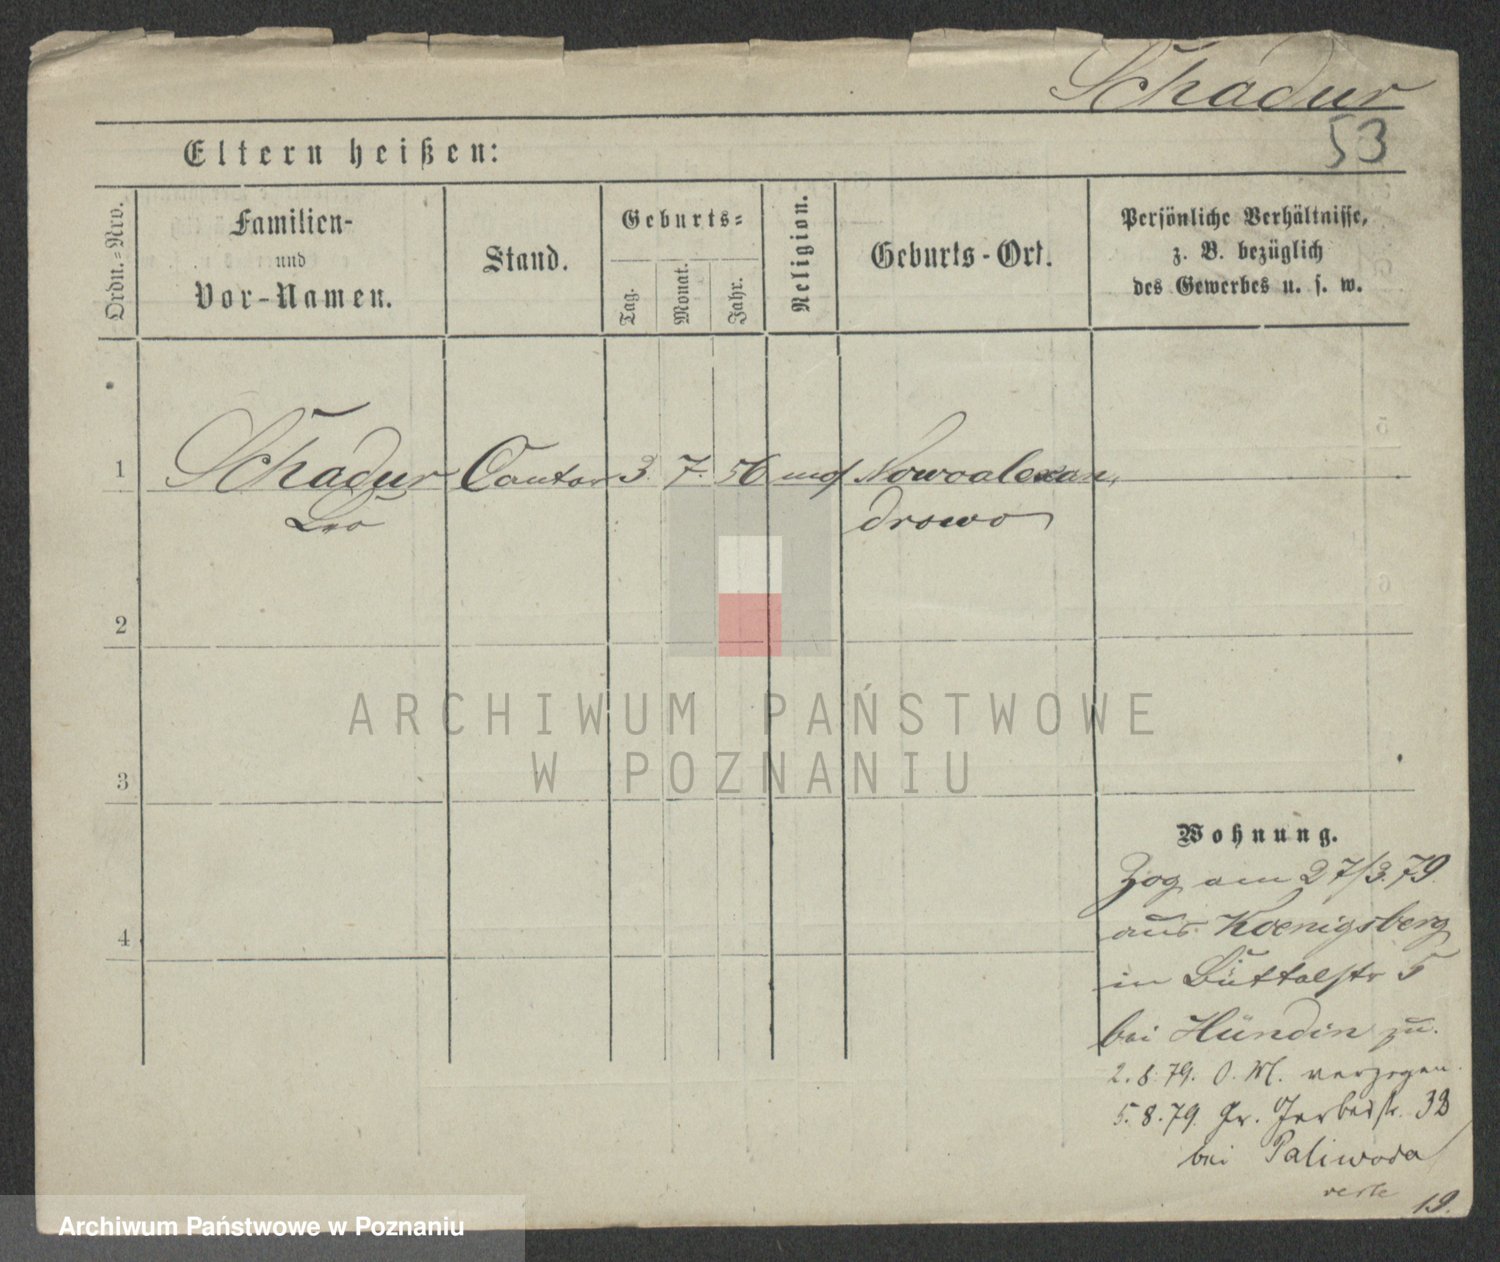 Schadur
53
Eltern heißen:
Ordn.-Nro.
Familien-
und
Vor-Namen.
Stand.
Geburts-
Tag.
Monat.
Jahr.
Religion.
Geburts-Ort.
Persönliche Verhältnisse,
z. B. bezüglich
des Gewerbes u. s. w.
1 Schadur Cantor 3. 7. 56 Nowoalexan
Leo drowo
2
3
4
ARCHIWUM PAŃSTWOWE
W POZNANIU
Wohnung.
Zog am 27/3.79.
aus Koenigsberg
in Büttelstr 5
bei Hündin zu.
2.8.79. O. M. verzogen.
5.8.79. Gr. Gerberstr. 38
bei Paliwoda
19.
Archiwum Państwowe w Poznaniu